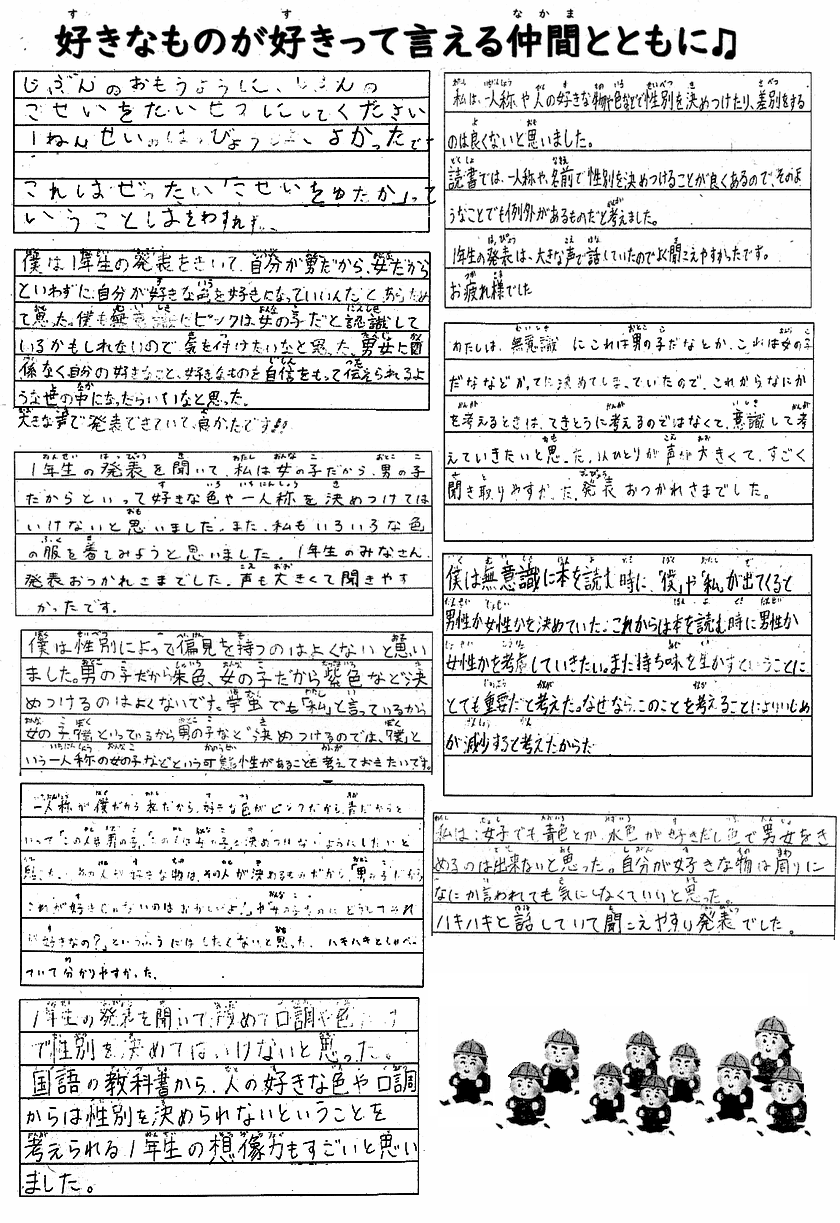 好きなものが好きって言える仲間とともに♫
じぶんのおもうように、じぶんの
こせいをたいせつにしてください
1ねんせいのはっぴょうは、よかったで
これはぜったい「こせいをゆたか」って
いうことはをわすれず、
僕は1年生の発表をきいて、自分が男だから、女だから
といわずに、自分が好きな色を好きになっていいんだとあらため
て思った。僕も無意識にピンクは女の子だと認識して
いるかもしれないので気を付けたいなと思った。男女に関
係なく自分の好きなこと、好きなものを自信をもって伝えられるよ
うな世の中になったらいいなと思った。
大きな声で発表できていて、良かったです!!
1年生の発表を聞いて、私は女の子だから、男の子
だからといって好きな色や一人称を決めつけては
いけないと思いました。また、私もいろいろな色
の服を着てみようと思いました。1年生のみなさん、
発表おつかれさまでした。声も大きくて聞きやす
かったです。
僕は性別によって偏見を持つのはよくないと思い
ました。男の子だから朱色、女の子だから紫色などと決
めつけるのはよくないです。学芸でも「私」と言っているから
女の子、僕といっているから男の子などと決めつけるのでは、「僕」と
いう一人称の女の子などという可能性があることを考えておきたいです。
一人称が僕だから私だから、好きな色がピンクだから、青だからと
いって「この人は男の子、この人は女の子」と決めつけないようにしたいと
感じた。その人が好きな物は、その人が決めるものだから「男の子だから
これが好きじゃないのはおかしいよ!」や「女の子なのにどうしてそれ
が好きなの?」というふうにはしたくないと思った。ハキハキとしゃべっ
ていて分かりやすかった。
1年生の発表を聞いて、改めて口調や色
で性別を決めてはいけないと思った。
国語の教科書から、人の好きな色や口調
からは性別を決められないということを
考えられる1年生の想像力もすごいと思い
ました。
私は、一人称や人の好きな物や色などで性別を決めつけたり、差別をする
のは良くないと思いました。
読書では、一人称や、名前で性別を決めつけることが良くあるので、そのよ
うなことでも例外があるものだと考えました。
1年生の発表は、大きな声で話していたのでよく聞こえやすかったです。
お疲れ様でした
わたしは、無意識にこれは男の子だなとか、これは女の子
だななどかってに決めてしまっていたので、これからなにか
を考えるときは、てきとうに考えるのではなくて、意識して考
えていきたいと思った。1人ひとりが声が大きくて、すごく
聞き取りやすかった。発表おつかれさまでした。
僕は無意識に本を読む時に、「僕」や「私」が出てくると
男性か女性かを決めていた。これからは本を読む時に男性か
女性かを考慮していきたい。また持ち味を生かすということに
とても重要だと考えた。なぜなら、このことを考えることによりいじめ
が減少すると考えたからだ
私は、女子でも青色とか、水色が好きだし色で男女をき
めるのは出来ないと思った。自分が好きな物は周りに
なにか言われても気にしなくていいと思った。
ハキハキと話していて聞こえやすい発表でした。